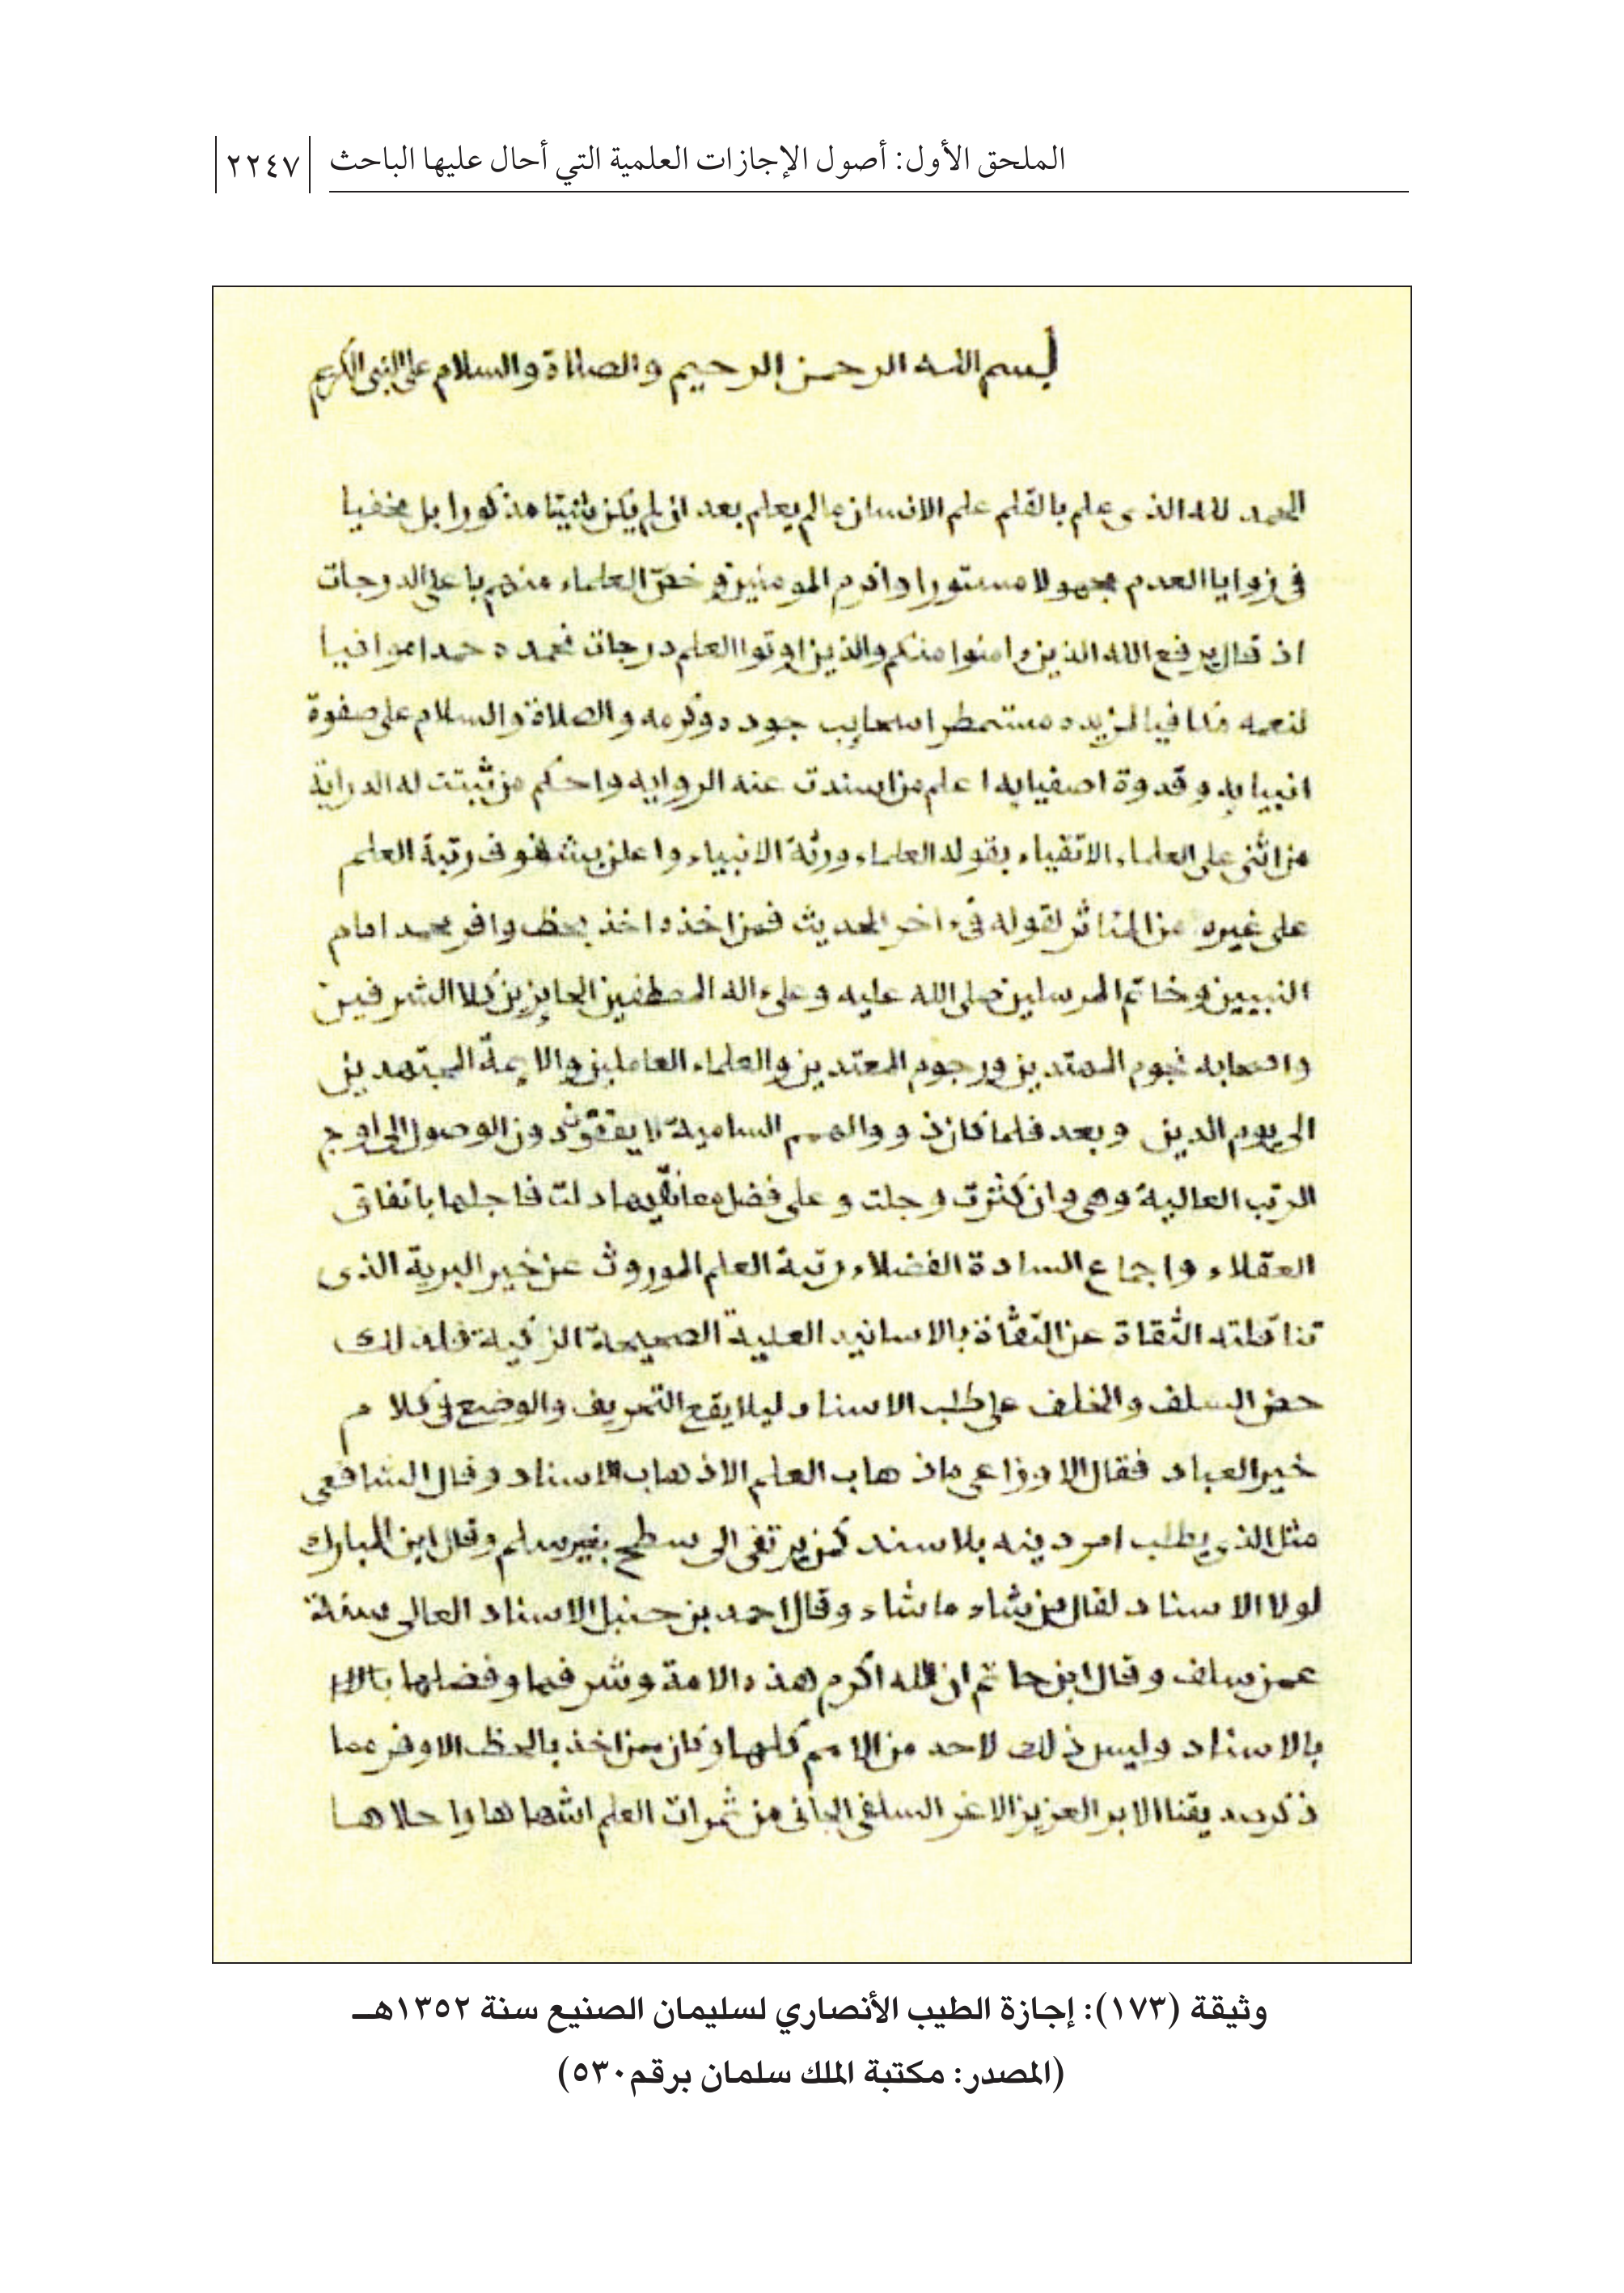 الملحق الأول: أصول الإجازات العلمية التي أحال عليها الباحث ٢٢٤٧
بسم الله الرحمن الرحيم والصلاة والسلام على النبي الكريم
الحمد لله الذى علم بالقلم علم الانسان مالم يعلم بعد ان لم يكن شيئا مذكورا بل مخفيا
في زوايا العدم مجهولا مستورا واكرم المومنين وخص العلماء منهم باعلى الدرجات
اذ قال يرفع الله الذين ءامنوا منكم والذين اوتوا العلم درجات نحمده حمدا موافيا
لنعمه مكافيا لمزيده مستمطرا سحايب جوده وكرمه والصلاة والسلام على صفوة
انبيايه وقدوة اصفيايه اعلم من اسندت عنه الروايه واحكم من ثبتت له الدراية
من اثنى على العلماء الاتقياء بقوله العلماء ورثة الانبياء واعلن بشفوف رتبة العلم
على غيره من المئاثر لقوله في ءاخر الحديث فمن اخذه اخذ بحظ وافر محمد امام
النبيين وخاتم المرسلين صلى الله عليه وعلى ءاله المصطفين الحايزين كلا الشرفين
واصحابه نجوم المهتدين ورجوم المعتدين والعلماء العاملين والايمة المجتهدين
الى يوم الدين وبعد فلما كان ذوو الهمم السامية لا يقفون دون الوصول الى اوج
الرتب العالية وهى وان كثرت وجلت وعلى فضل معانيها دلت فاجلها باتفاق
العقلاء واجماع السادة الفضلاء رتبة العلم الموروث عن خير البرية الذى
تناقلته الثقاة عن الثقاة بالاسانيد العلية الصحيحة الزكية فلذلك
حض السلف والخلف على طلب الاسناد ليلا يقع التحريف والوضع في كلام
خير العباد فقال الاوزاعى ماذهاب العلم الاذهاب الاسناد وقال الشافعى
مثل الذى يطلب امر دينه بلا سند كمن يرتقى الى سطح بغير سلم وقال ابن المبارك
لولا الاسناد لقال من شاء ماشاء وقال احمد بن حنبل الاسناد العالى سنة
عمن سلف وقال ابن حاتم ان الله اكرم هذه الامة وشرفها وفضلها بالا
بالاسناد وليس ذلك لاحد من الامم كلها وكان ممن اخذ بالحظ الاوفر مما
ذكر صديقنا الابر العزيز الاغر السلفى الجانى من ثمرات العلم اشهاها واحلاها
وثيقة (١٧٣): إجازة الطيب الأنصاري لسليمان الصنيع سنة ١٣٥٢هـ
(المصدر: مكتبة الملك سلمان برقم٥٣٠)